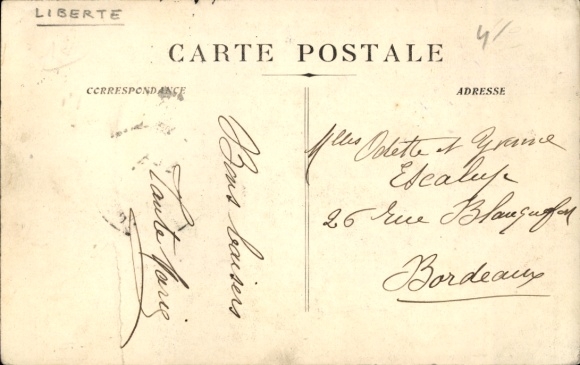 LIBERTE
CARTE POSTALE
CORRESPONDANCE
ADRESSE
Bons baisers
Tante Marie
Mlles Odette et Yvonne
26 rue Blanquefort
Bordeaux